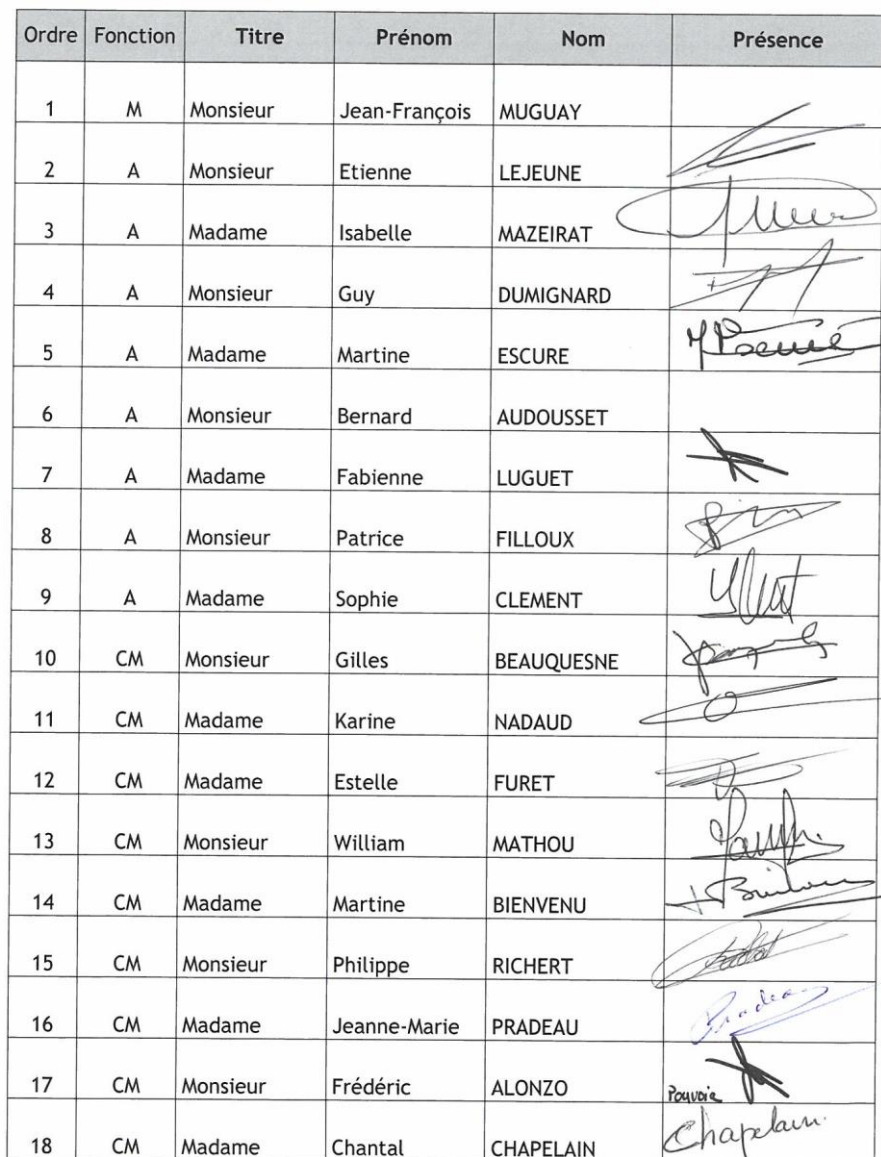 Ordre Fonction Titre Prénom Nom Présence
1 M Monsieur Jean-François MUGUAY
2 A Monsieur Etienne LEJEUNE
3 A Madame Isabelle MAZEIRAT
4 A Monsieur Guy DUMIGNARD
5 A Madame Martine ESCURE
6 A Monsieur Bernard AUDOUSSET
7 A Madame Fabienne LUGUET
8 A Monsieur Patrice FILLOUX
9 A Madame Sophie CLEMENT
10 CM Monsieur Gilles BEAUQUESNE
11 CM Madame Karine NADAUD
12 CM Madame Estelle FURET
13 CM Monsieur William MATHOU
14 CM Madame Martine BIENVENU
15 CM Monsieur Philippe RICHERT
16 CM Madame Jeanne-Marie PRADEAU Pradeau
17 CM Monsieur Frédéric ALONZO Pouvoir
18 CM Madame Chantal CHAPELAIN Chapelain